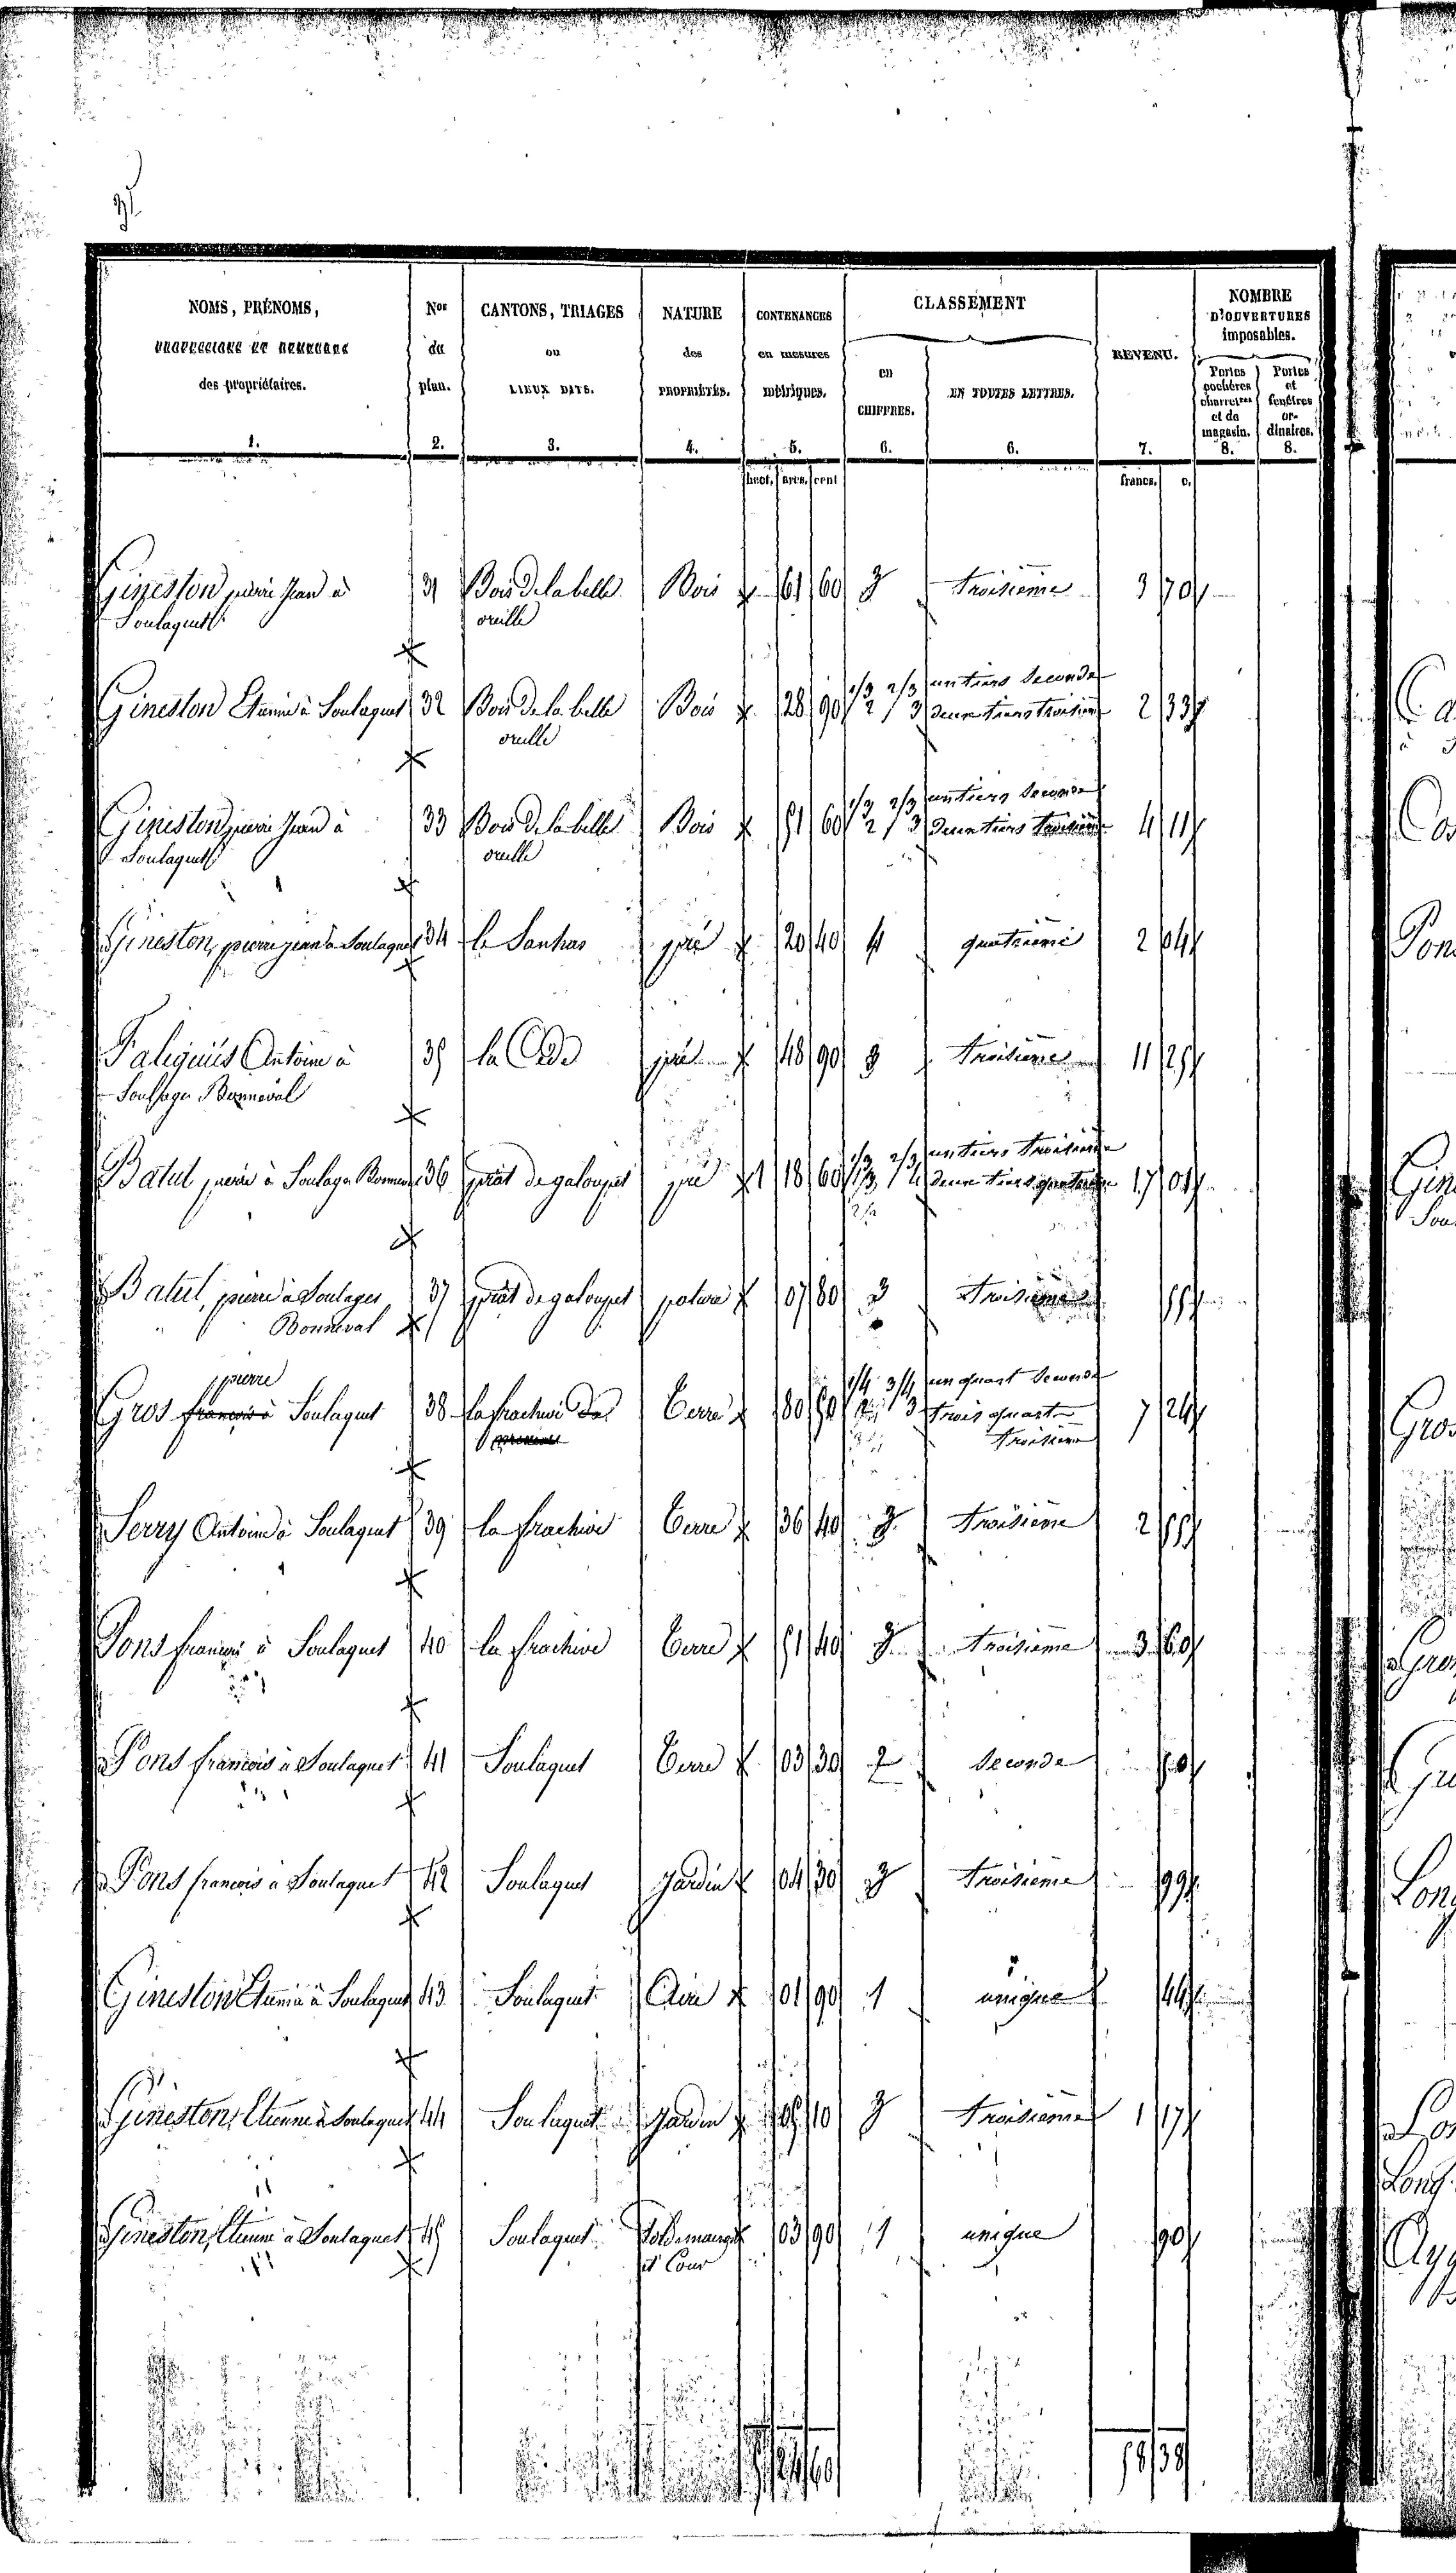 NOMS, PRÉNOMS,
PROFESSIONS ET DEMEURES
des propriétaires.
1.
Nos
du
plan.
2.
CANTONS, TRIAGES
ou
LIEUX DITS.
3.
NATURE
des
PROPRIÉTÉS.
4.
CONTENANCES
en mesures
métriques.
5.
CLASSEMENT
en
CHIFFRES.
6.
EN TOUTES LETTRES.
6.
REVENU.
7.
NOMBRE
D'OUVERTURES
imposables.
Portes
cochères
charretres
et de
magasin.
8.
Portes
et
fenêtres
or-
dinaires.
8.
hect. ares. cent
francs. c.
Gineston pierre Jean à 31 Bois de la belle Bois 61 60 3 troisieme 3 70
Soulaguet oreille
1/3 2/3 un tiers Seconde
Gineston Etienne à Soulaguet 32 Bois de la belle Bois 28 90 2 3 deux tiers troisieme 2 33
oreille
1/3 2/3 un tiers Seconde
Gineston pierre Jean à 33 Bois de la belle Bois 51 60 2 3 deux tiers troisieme 4 11
Soulaguet oreille
Gineston, pierre jean à Soulaguet 34 le Sanhas pré 20 40 4 quatrieme 2 04
Antoine à 35 la pré 48 90 3 troisieme 11 25
Soulages Bonneval
1/3 2/3 un tiers troisieme
Batut pierre à Soulages Bonneval 36 prat de galoupet pré 1 18 60 3 4 deux tiers quatrieme 17 01
Batut, pierre à Soulages 37 prat de galoupet pature 07 80 3 troisieme 55
Bonneval
pierre 1/4 3/4 un quart Seconde
Gros françois à Soulaguet 38 la frachive Terre 80 50 2 3 trois quarts 7 24
troisieme
Serry Antoine à Soulaguet 39 la frachive Terre 36 40 3 troisieme 2 55
Pons françois à Soulaguet 40 la frachive Terre 51 40 3 troisieme 3 60
Pons francois à Soulaguet 41 Soulaguet Terre 03 30 2 Seconde
Pons francois à Soulaguet 42 Soulaguet Jardin 04 30 3 troisieme 99
Gineston Etienne à Soulaguet 43 Soulaguet Aire 01 90 1 unique 44
Gineston, Etienne à Soulaguet 44 Soulaguet Jardin 05 10 3 troisieme 1 17
Gineston, Etienne à Soulaguet 45 Soulaguet Sol de maison 03 90 1 unique 90
et Cour
58 38